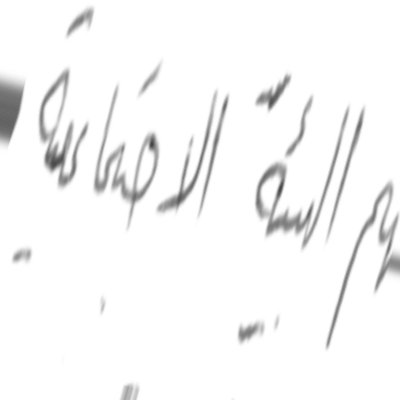 البيئة الاجتماعية